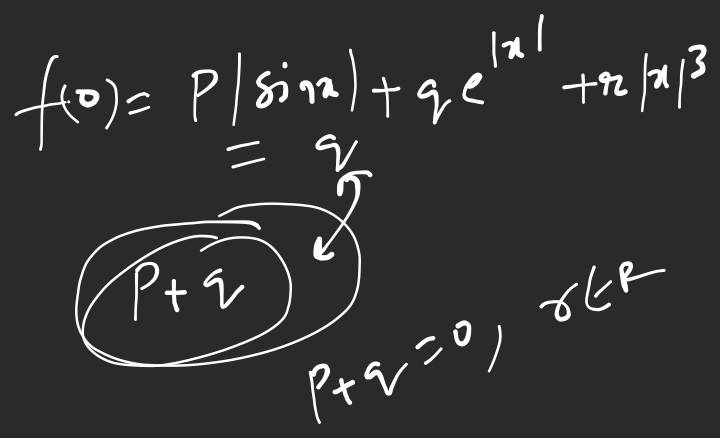 f(0) = P|sinx| + qe^|x| + r|x|^3
= q
P+q
P+q=0, r∈R